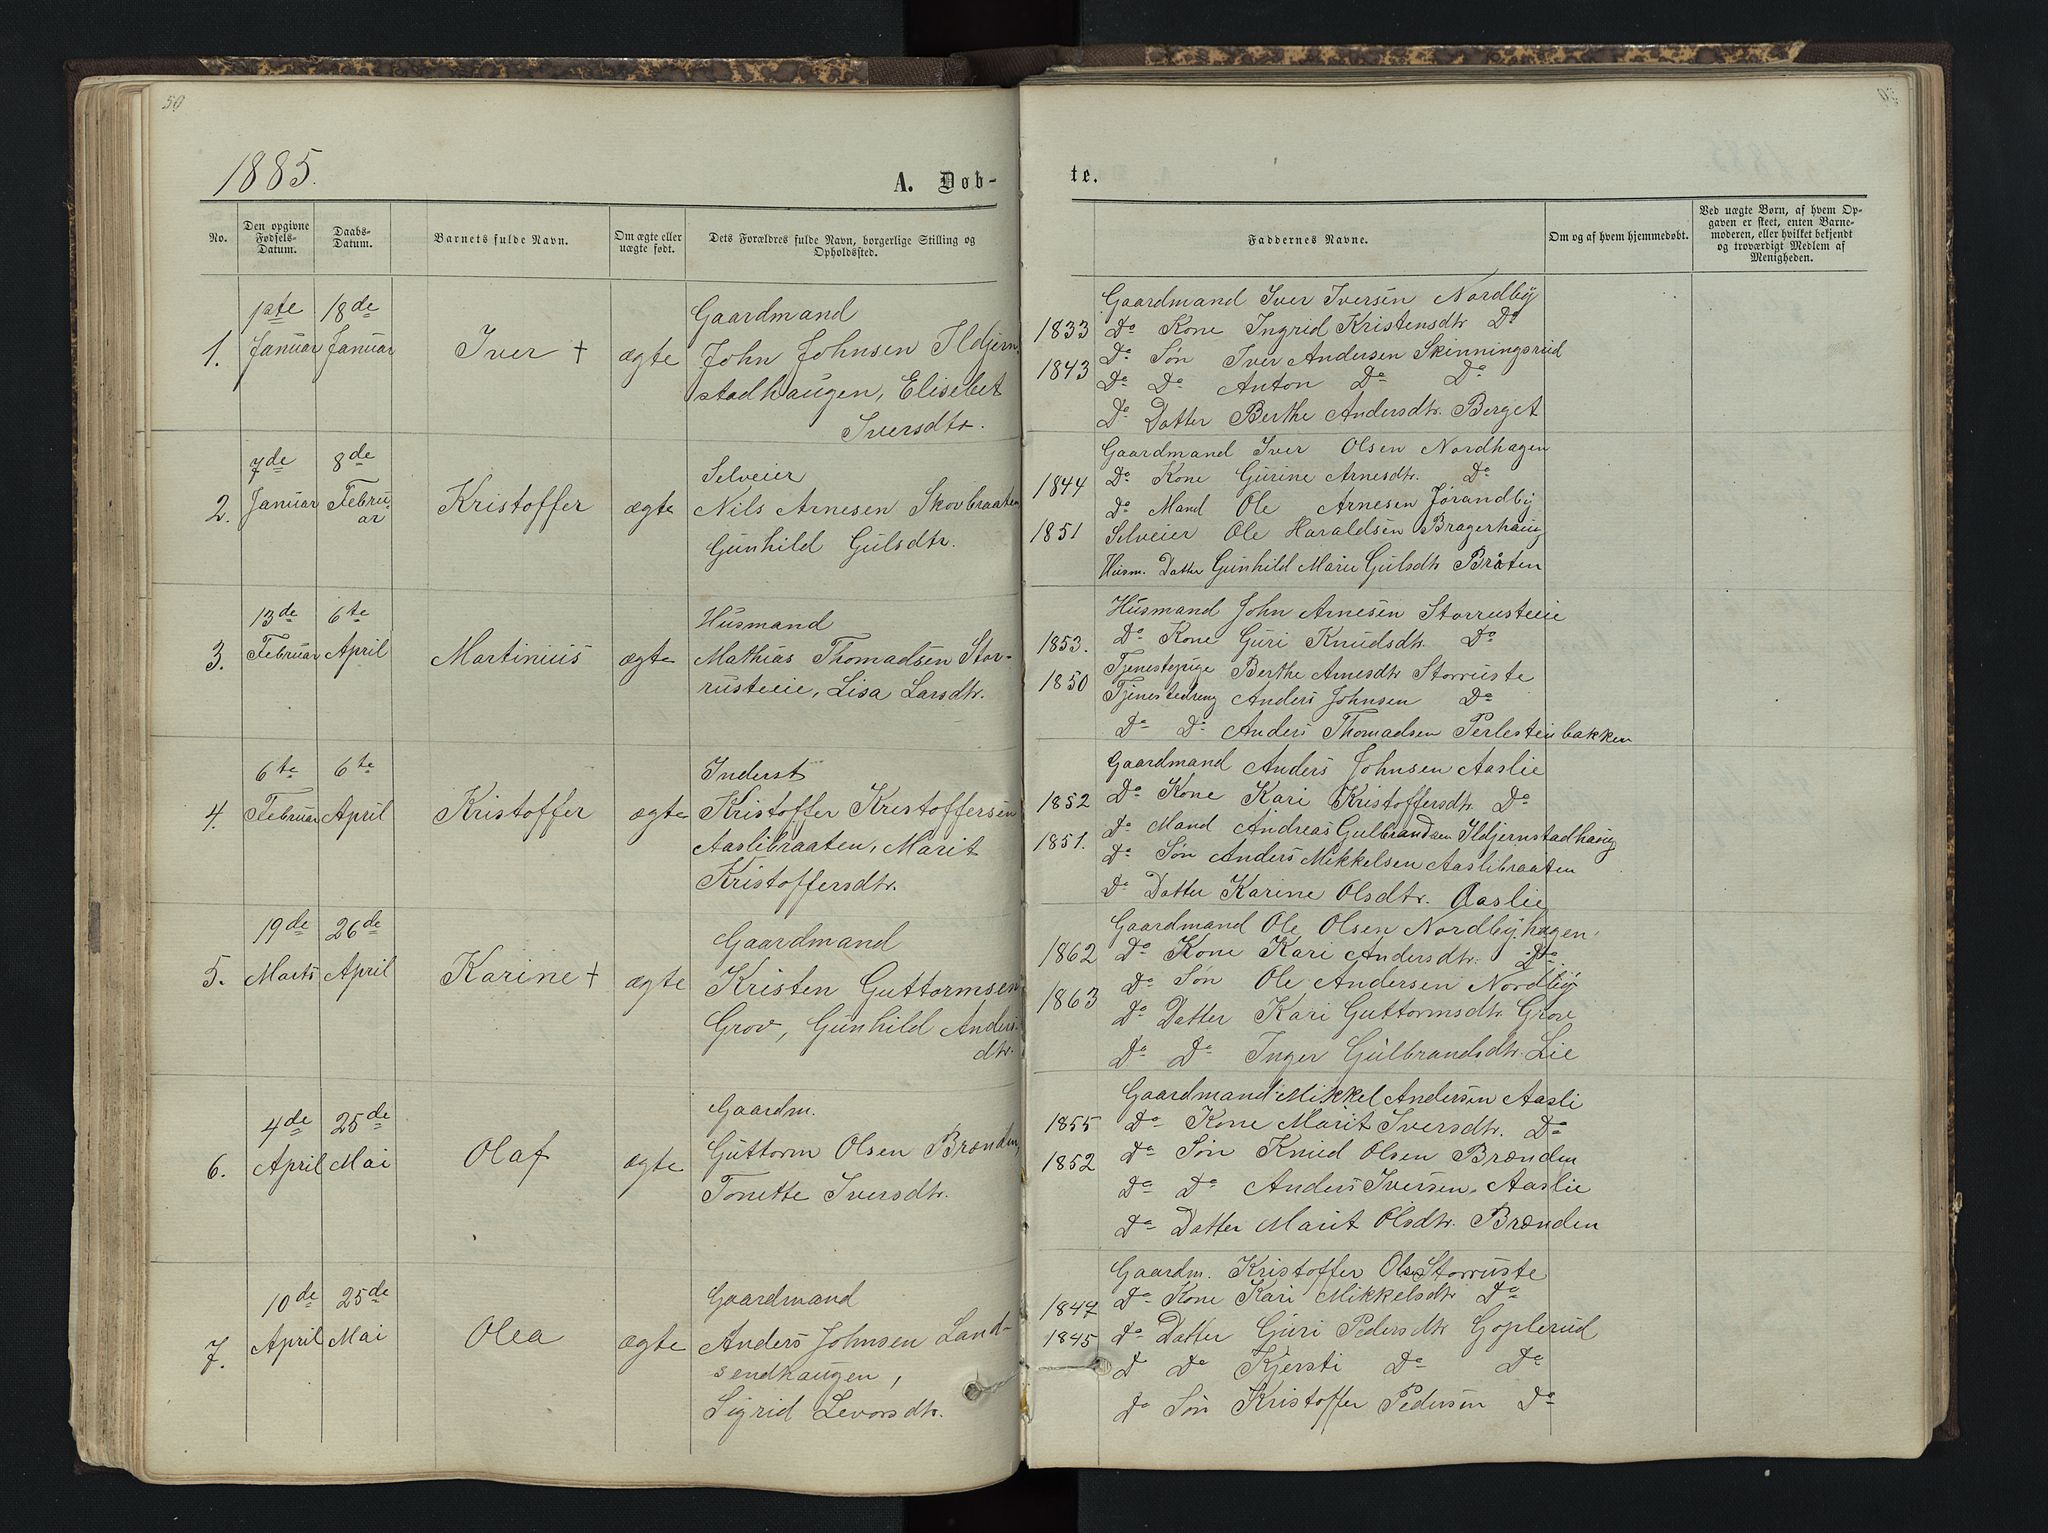 50
1885.
A. Døb-
No.
Den opgivne Fødsels-Datum.
Daabs-Datum.
Barnets fulde Navn.
Om ægte eller uægte født.
Dets Forældres fulde Navn, borgerlige Stilling og Opholdssted.
1.
1ste Januar
18de Januar
Iver +
ægte
Gaardmand
John Johnsen Ildjern-
stadhaugen, Elisebet
Iversdtr.
2.
7de Januar
8de Februar
Kristoffer
ægte
Selveier
Nils Arnesen Skovbraaten
Gunhild Gulsdtr.
3.
13de Februar
6te April
Martinius
ægte
Husmand
Mathias Thomadsen Stor-
rusteie, Lisa Larsdtr.
4.
6te Februar
6te April
Kristoffer
ægte
Inderst
Kristoffer Kristoffersen
Aaslibraaten, Marit
Kristoffersdtr.
5.
19de Marts
26de April
Karine +
ægte
Gaardmand
Kristen Guttormsen
Grov, Gunhild Anders
dtr.
6.
4de April
25de Mai
Olaf
ægte
Gaardm.
Guttorm Olsen Brænden,
Tonette Iversdtr.
7.
10de April
25de Mai
Olea
ægte
Gaardmand
Anders Johnsen Land-
sendhaugen,
Sigrid Levorsdtr.
te.
Faddernes Navne.
Om og af hvem hjemmedøbt.
Ved uægte Børn, af hvem Op-
gaven er skeet, enten Barne-
moderen, eller hvilket bekjendt
og troværdigt Medlem af
Menigheden.
Gaardmand Iver Iversen Nordby
1833 Do Kone Ingrid Kristensdtr Do
Do Søn Iver Andersen Skinningsrud
1843 Do Do Anton Do Do
Do Datter Berthe Andersdtr. Berget
Gaardmand Iver Olsen Nordhagen
1844 Do Kone Gurine Arnesdtr. Do
Do Mand Ole Arnesen Jørandby
1851 Selveier Ole Haraldsen Bragerhaug
Husm. Datter Gunhild Marie Gulsdtr Bråten
Husmand John Arnesen Storrusteie
1853. Do Kone Guri Knudsdtr. Do
Tjenestepige Berthe Arnesdtr Storruste
1850 Tjenestedreng Anders Johnsen Do
Do Do Anders Thomadsen Perlesteinbakken
Gaardmand Anders Johnsen Aaslie
1852 Do Kone Kari Kristoffersdtr. Do
Do Mand Andreas Gulbrandsen Ildjernstadhaug
1851. Do Søn Anders Mikkelsen Aaslibraaten
Do Datter Karine Olsdtr. Aaslie
Gaardmand Ole Olsen Nordbyhagen.
1862 Do Kone Kari Andersdtr. Do.
Do Søn Ole Andersen Nordby
1863 Do Datter Kari Guttormsdtr. Grov
Do Do Inger Gulbrandsdtr. Lie
Gaardmand Mikkel Andersen Aasli
1855 Do Kone Marit Iversdtr. Do
Do Søn Knud Olsen Brænden
1852 Do Do Anders Iversen, Aaslie
Do Datter Marit Olsdtr. Brænden
Gaardm. Kristoffer Ols Storruste
1847 Do Kone Kari Mikkelsdtr Do
1845 Do Datter Guri Pedersdtr Goplerud
D Do Kjersti Do Do
Do Søn Kristoffer Pedersen Do